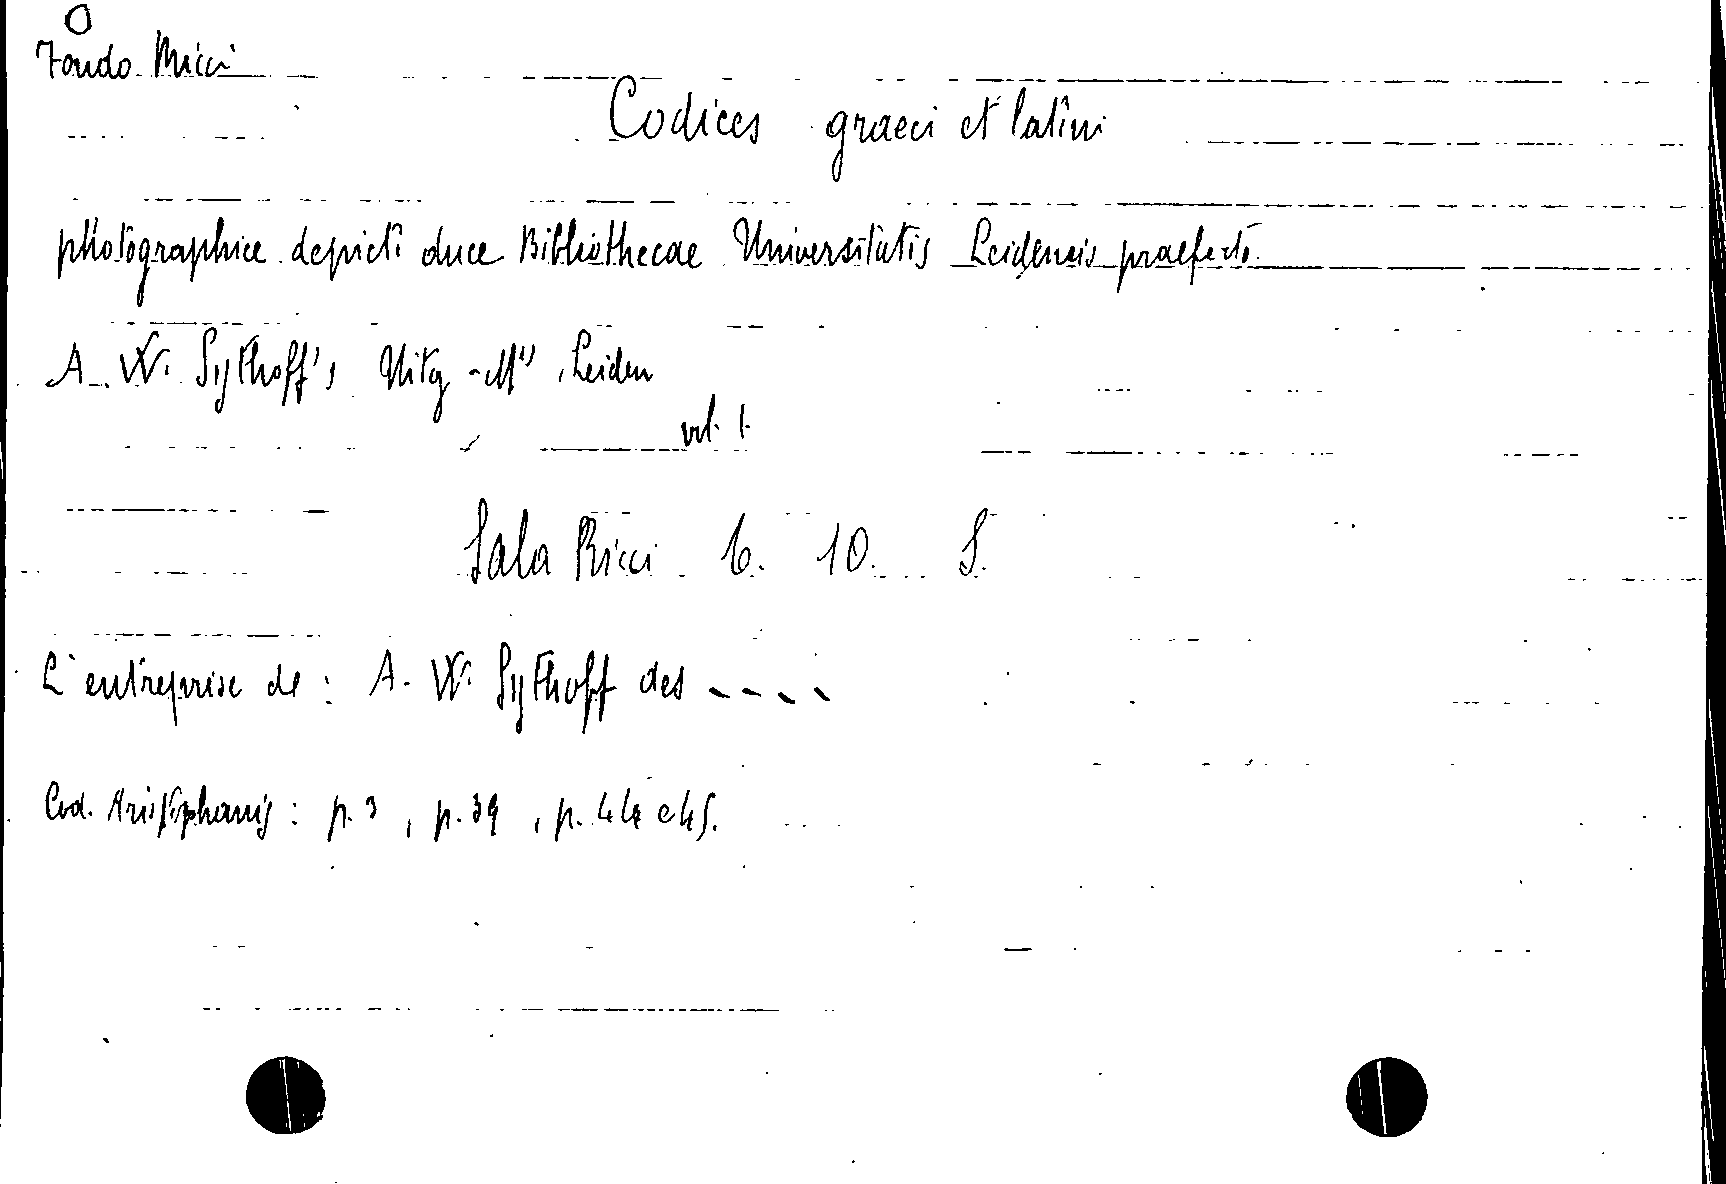 O
Fondo Ricci
Codices graeci et latini
photographice depicti duce Bibliothecae Universitatis Leidensis praefecto
A. W. Sijthoff's Uitg - Mij Leiden
vol. 1.
Sala Ricci 6. 10. S.
L'entreprise de : A. W. Sijthoff des ----
Cod. Aristophanis : p. 3 , p. 39 , p. 44 e 45.